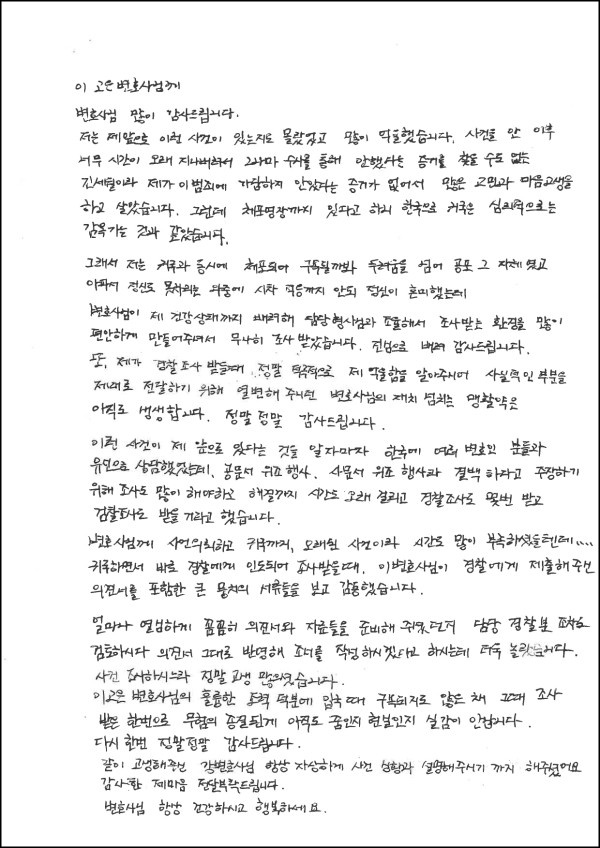 이 고은변호사님께
변호사님 많이 감사드립니다.
저는 제앞으로 이런 사건이 있는지도 몰랐었고 많이 억울했습니다. 사건을 안 이후
너무 시간이 오래 지나버려서 그나마 수사를 통해 안했다는 증거를 찾을 수도 없는
긴세월이라 제가 이범죄에 가담하지 안았다는 증거가 없어서 많은 고민과 마음고생을
하고 살았습니다. 그런데 체포영장까지 있다고 하니 한국으로 귀국은 심리적으로는
감옥가는 것과 같았습니다.
그래서 저는 귀국과 동시에 체포되어 구속될까봐 두려움을 넘어 공포 그 자체였고
아파서 정신도 못차리는 와중에 시차 적응까지 안되 정신이 혼미했는데
변호사님이 제 건강상태까지 배려해 담당형사님과 조율해서 조사받는 환경을 많이
편안하게 만들어주셔서 무사히 조사 받았습니다. 진심으로 배려 감사드립니다.
또, 제가 경찰조사 받을때 정말 적극적으로 제 억울함을 알아주시며 사실적인 부분을
제대로 전달하기 위해 열변해 주시던 변호사님의 재치 넘치는 맹활약은
아직도 생생합니다. 정말정말 감사드립니다.
이런 사건이 제 앞으로 있다는 것을 알자마자 한국에 여러 변호인 분들과
유선으로 상담했었는데, 공문서 위조 행사, 사문서 위조 행사라 결백 하다고 주장하기
위해 조사도 많이 해야하고 해결까지 시간도 오래 걸리고 경찰조사도 몇번 받고
검찰조사도 받을거라고 했습니다.
변호사님께 사건의뢰하고 귀국까지, 오래된 사건이라 시간도 많이 부족하셨을텐데....
귀국하면서 바로 경찰에게 인도되어 조사받을때, 이변호사님이 경찰에게 제출해주신
의견서를 포함한 큰 뭉치의 서류들을 보고 감동했습니다.
얼마나 열심하게 꼼꼼히 의견서와 자료들을 준비해 주셨던지 담당 경찰분 조차도
검토하시다 의견서 그대로 반영해 조서를 작성하시겠다고 하시는데 더욱 놀랐습니다.
사건 조사하시느라 정말 고생 많으셨습니다.
이고은 변호사님의 훌륭한 노력 덕분에 입국때 구속되지도 않은 채 그때 조사
받은 한번으로 무혐의 종결된게 아직도 꿈인지 현실인지 실감이 안납니다.
다시 한번 정말정말 감사드립니다.
같이 고생해주신 강변호사님 항상 자상하게 사건 상황과 설명해주시기 까지 해주셨어요
감사한 제마음 전달부탁드립니다.
변호사님 항상 건강하시고 행복하세요.